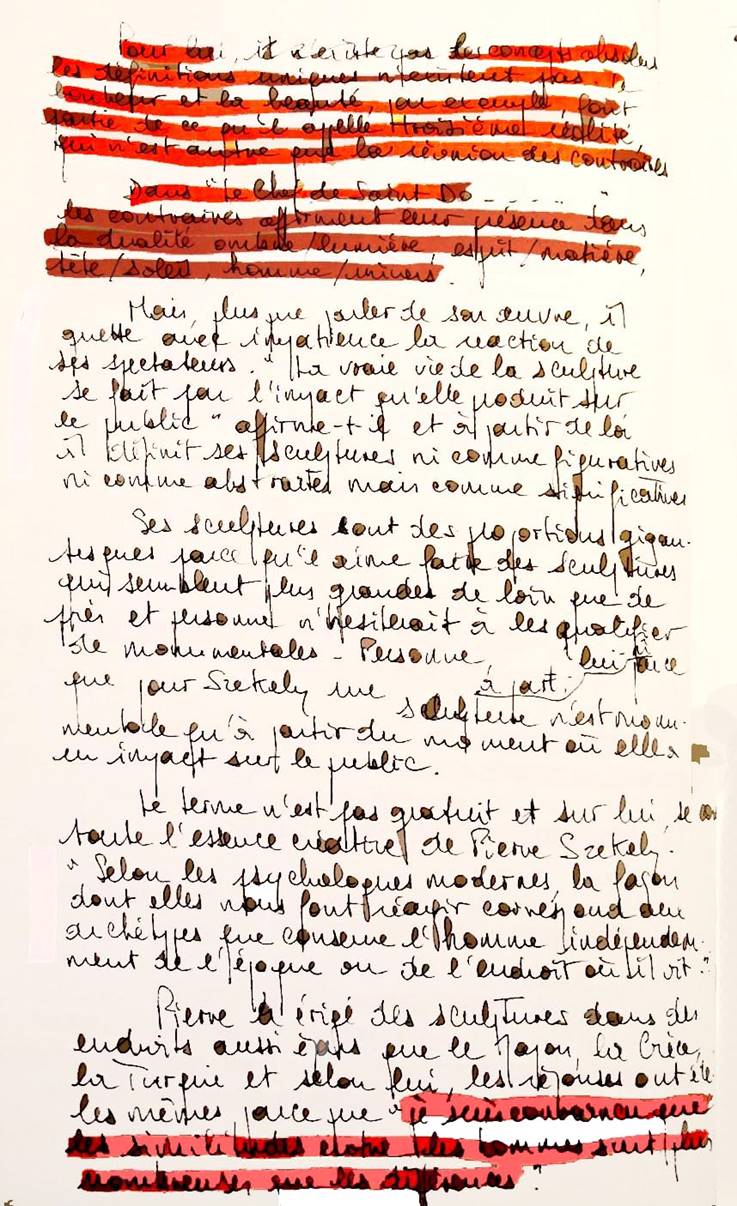 Pour lui, il n'existe pas des concepts absolus
les définitions uniques n'existent pas. Le
bonheur et la beauté, par exemple, font
partie de ce qu'il appelle troisième réalité,
qui n'est autre que la réunion des contraires
Dans "Le Chef de Saint Do - - - - - "
les contraires affirment leur présence dans
la dualité ombre/lumière, esprit/matière,
tête/soleil, homme/univers.
Mais, plus que parler de son œuvre, il
guette avec impatience la reaction de
ses spectateurs. "La vraie vie de la sculpture
se fait par l'impact qu'elle produit sur
le public" affirme-t-il et à partir de là
il définit ses sculptures ni comme figuratives
ni comme abstraites mais comme significatives
Ses sculptures sont des proportions gigan-
tesques parce qu'il aime faire des sculptures
qui semblent plus grandes de loin que de
près et personne n'hesiterait à les qualifier
de monumentales - Personne, lui
à part, parce
que pour Szekely une sculpture n'est monu-
mentale qu'à partir du moment où elle a
un impact sur le public.
Le terme n'est pas gratuit et sur lui, se
toute l'essence créatrice de Pierre Szekely.
"Selon les psychologues modernes, la façon
dont elles nous font réagir correspond aux
archétypes que conserve l'homme indépendem-
ment de l'époque ou de l'endroit où il vit".
Pierre a érigé des sculptures dans des
endroits aussi épars que le Japon, la Grèce,
la Turquie et selon lui, les réponses ont été
les mêmes parce que "je suis convaincu que
les similitudes entre les hommes sont plus
nombreuses que les différences".